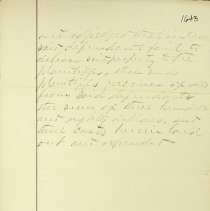 1683
and adjudged that in case
said defendants fail to
deliver said property to the
plaintiffs, that said
plaintiffs recover of and
from said defendants
the sum of three hundred
and eighty dollars, and
their costs herein laid
out and expended